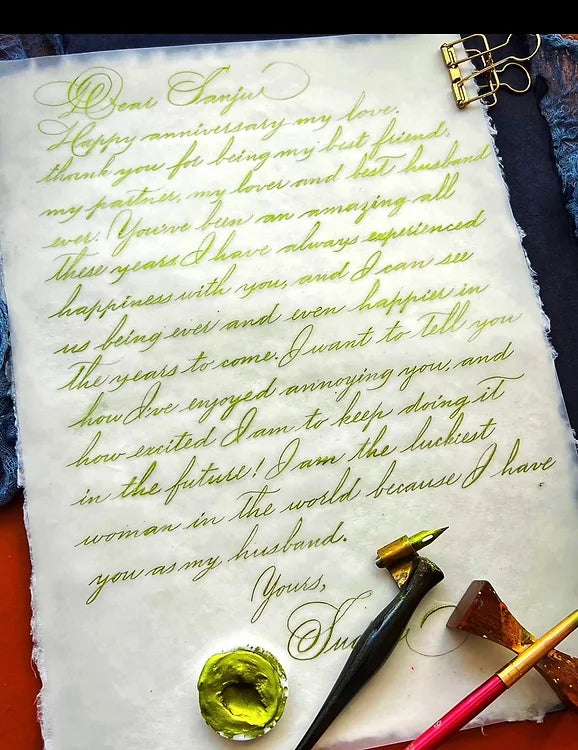 Dear Sanju
Happy anniversary my love.
thank you for being my best friend,
my partner, my lover and best husband
ever. You've been an amazing all
these years I have always experienced
happiness with you, and I can see
us being ever and even happier in
the years to come. I want to tell you
how I've enjoyed annoying you, and
how excited I am to keep doing it
in the future! I am the luckiest
woman in the world because I have
you as my husband.
Yours,